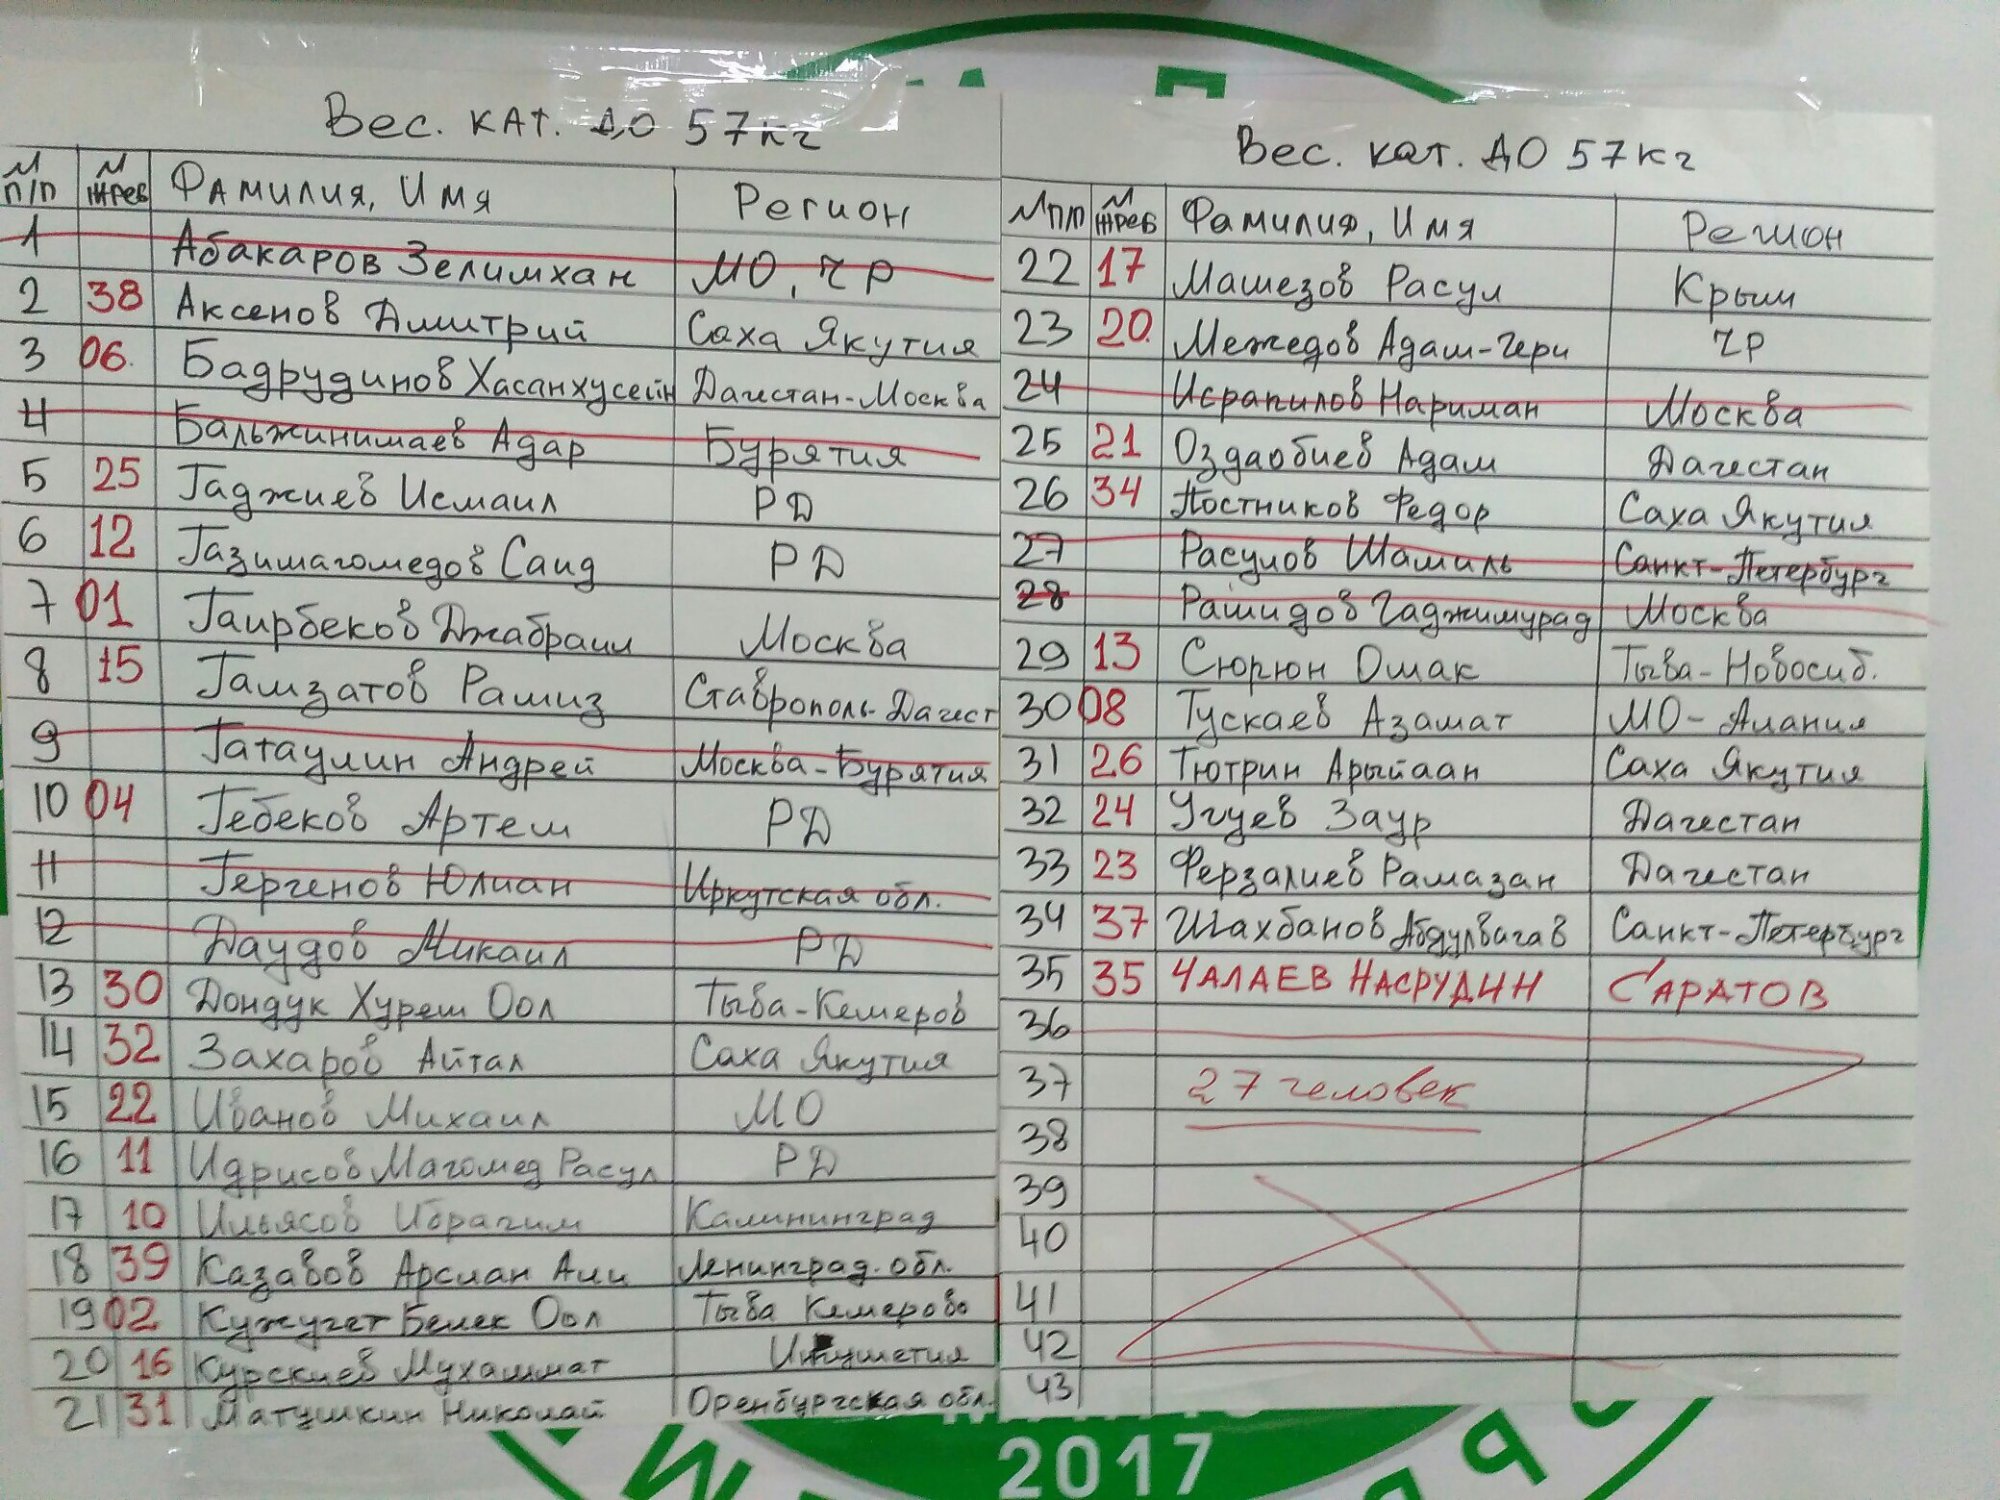 Вес. кат. до 57кг
№ п/п № жреб Фамилия, Имя Регион
1 Абакаров Зелимхан МО, ЧР
2 38 Аксенов Дмитрий Саха Якутия
3 06. Бадрудинов Хасанхусейн Дагестан-Москва
4 Бальжинимаев Адар Бурятия
5 25 Гаджиев Исмаил РД
6 12 Газимагомедов Саид РД
7 01 Гаирбеков Джабраил Москва
8 15 Гамзатов Рамиз Ставрополь-Дагест
9 Гатаулин Андрей Москва-Бурятия
10 04 Гебеков Артем РД
11 Гергенов Юлиан Иркутская обл.
12 Даудов Микаил РД
13 30 Дондук Хуреш Оол Тыва-Кемеров
14 32 Захаров Айтал Саха Якутия
15 22 Иванов Михаил МО
16 11 Идрисов Магомед Расул РД
17 10 Ильясов Ибрагим Калининград
18 39 Казавов Арслан Али Ленинград. обл.
19 02 Кужугет Белек Оол Тыва Кемерово
20 16 Курскиев Мухаммат Ингушетия
21 31 Матушкин Николай Оренбургская обл.
Вес. кат. до 57кг
№ п/п № жреб Фамилия, Имя Регион
22 17 Машезов Расул Крым
23 20. Межедов Адам-Гери ЧР
24 Исрапилов Нариман Москва
25 21 Оздаобиев Адам Дагестан
26 34 Постников Федор Саха Якутия
27 Расулов Шамиль Санкт-Петербург
28 Рашидов Гаджимурад Москва
29 13 Сюрюн Ошак Тыва-Новосиб.
30 08 Тускаев Азамат МО-Алания
31 26 Тютрин Арыйаан Саха Якутия
32 24 Угуев Заур Дагестан
33 23 Ферзалиев Рамазан Дагестан
34 37 Шахбанов Абдулвагав Санкт-Петербург
35 35 ЧАЛАЕВ НАСРУДИН САРАТОВ
36
37 27 человек
38
39
40
41
42
43
2017